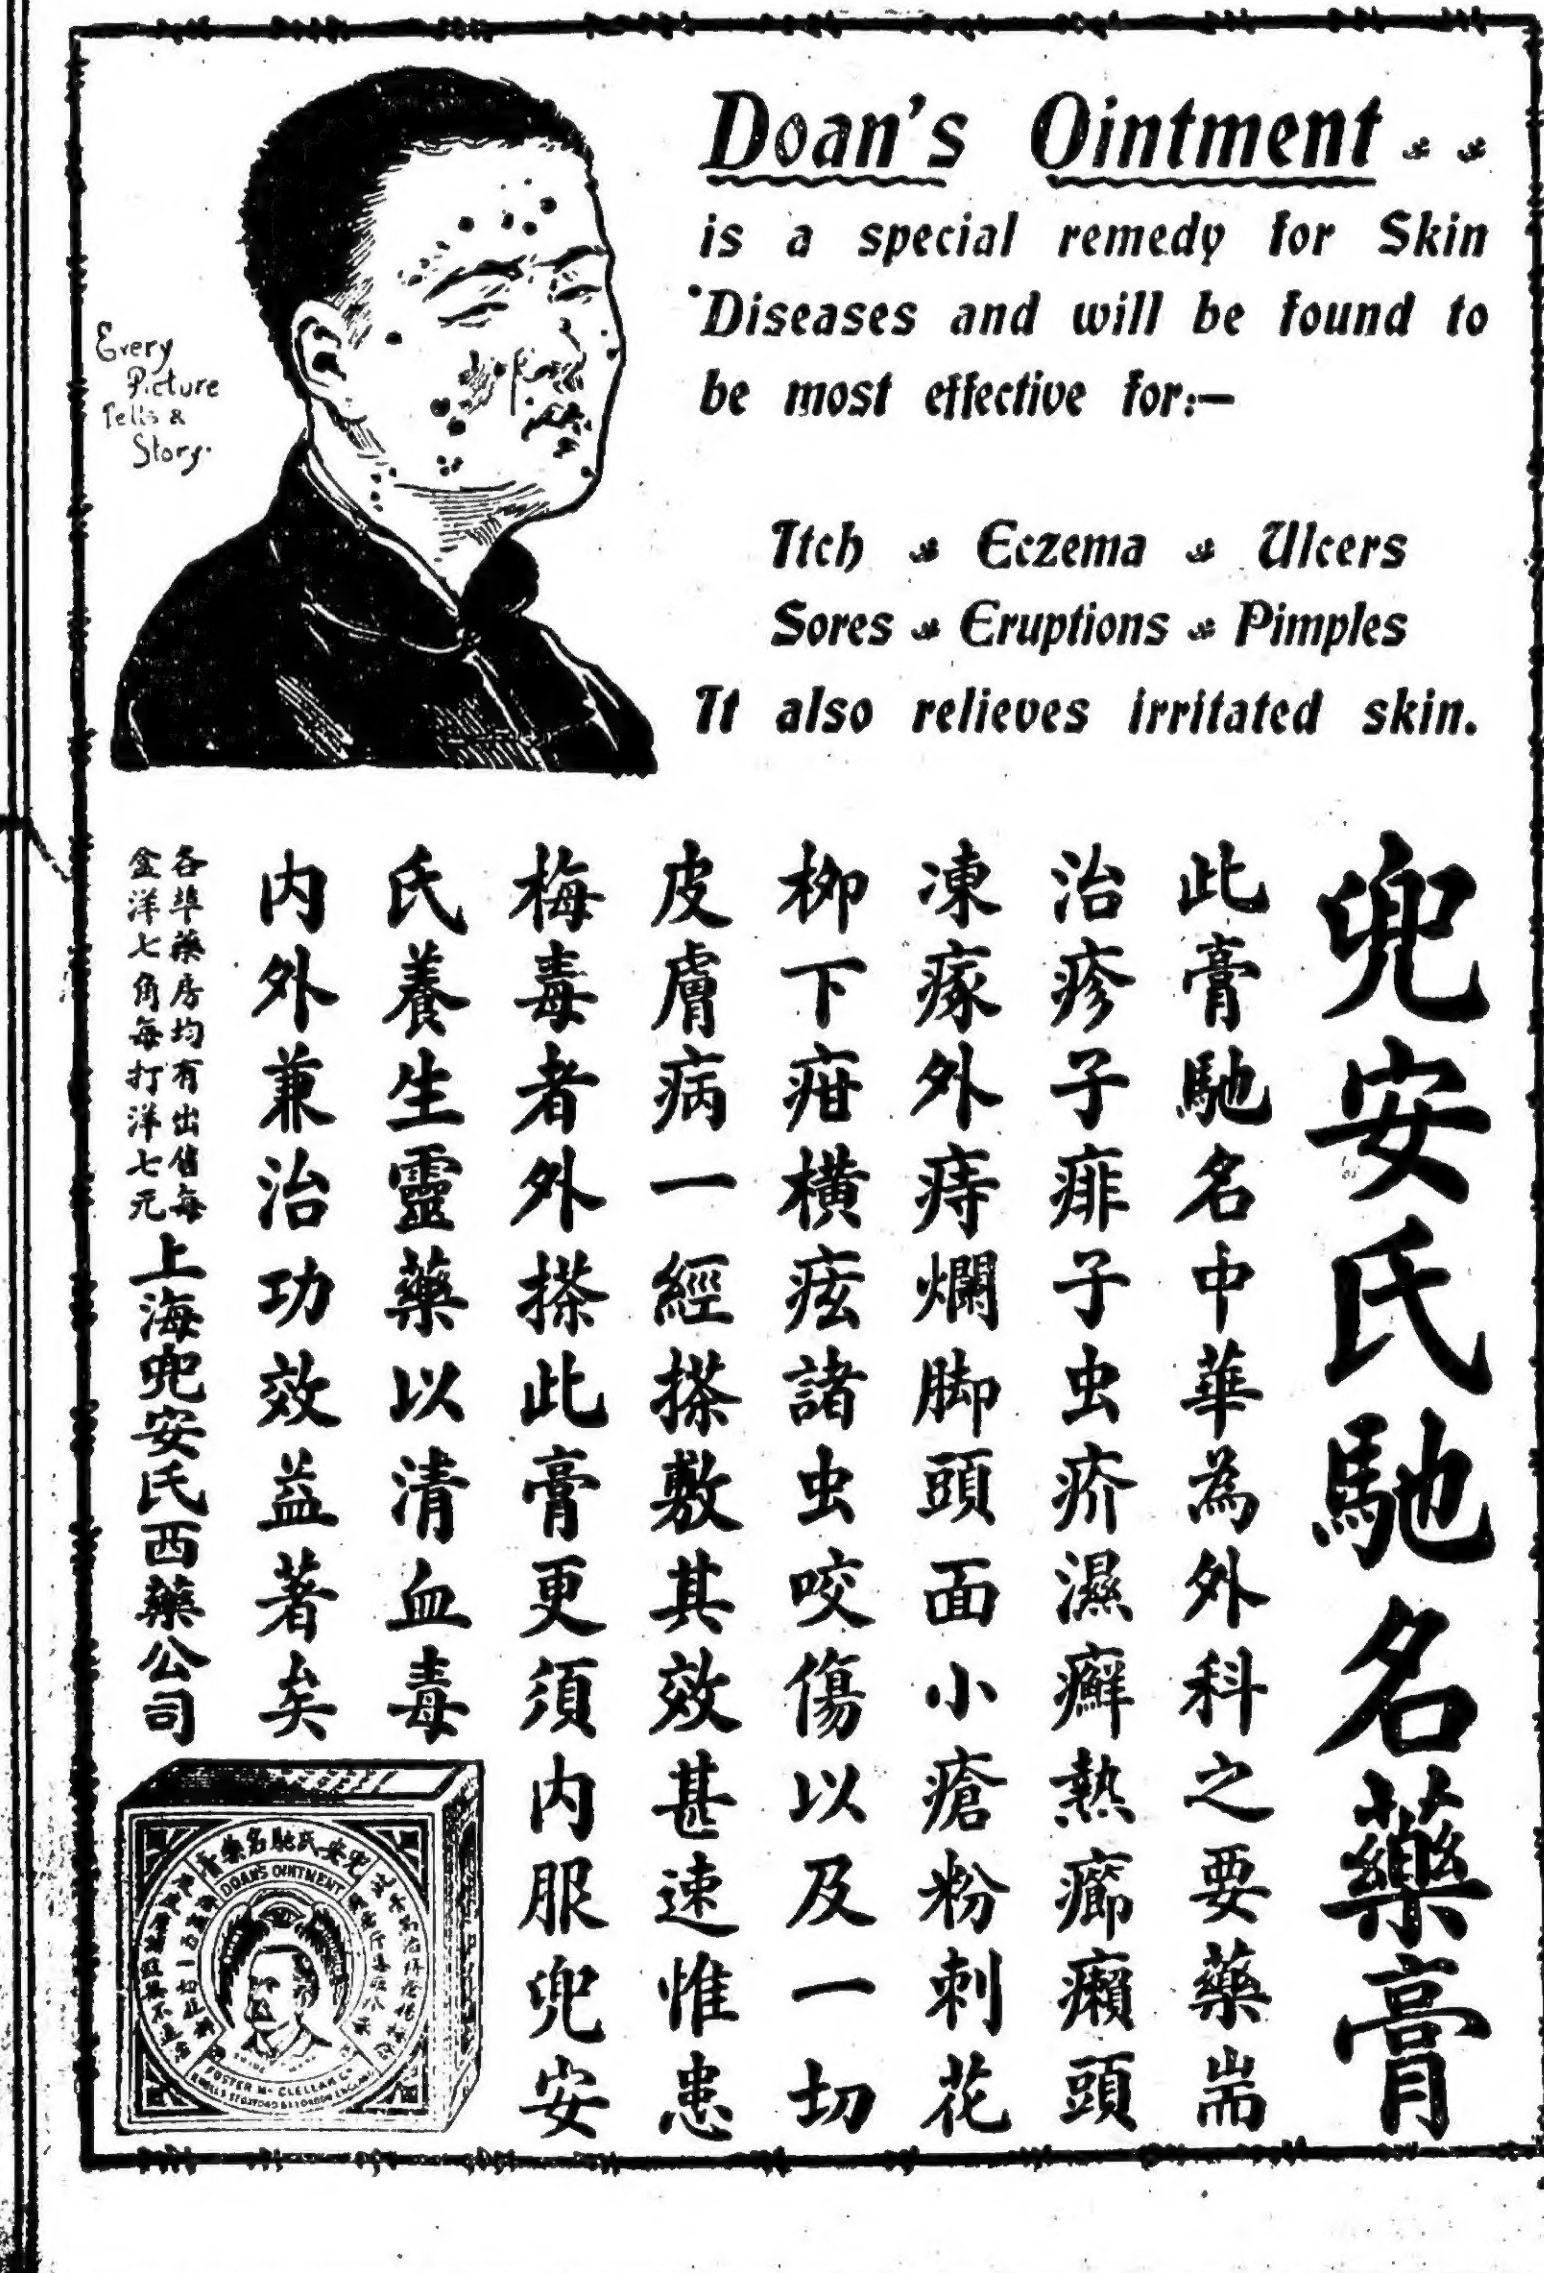 Doan's Ointment
is a special remedy for Skin
Diseases and will be found to
be most effective for:—
Itch Eczema Ulcers
Sores Eruptions Pimples
It also relieves irritated skin.
Every
Picture
Tells a
Story.
兜安氏馳名藥膏
此膏馳名中華為外科之要藥耑
治疹子痱子虫疥濕癬熱癤癩頭
凍瘃外痔爛脚頭面小瘡粉刺花
柳下疳橫痃諸虫咬傷以及一切
皮膚病一經搽敷其效甚速惟患
梅毒者外搽此膏更須内服兜安
氏養生靈藥以清血毒
内外兼治功效益著矣
各埠藥房均有出售每
盒洋七角每打洋七元
上海兜安氏西藥公司
兜安氏馳名藥膏
DOAN'S OINTMENT
FOSTER Mc CLELLAN Co